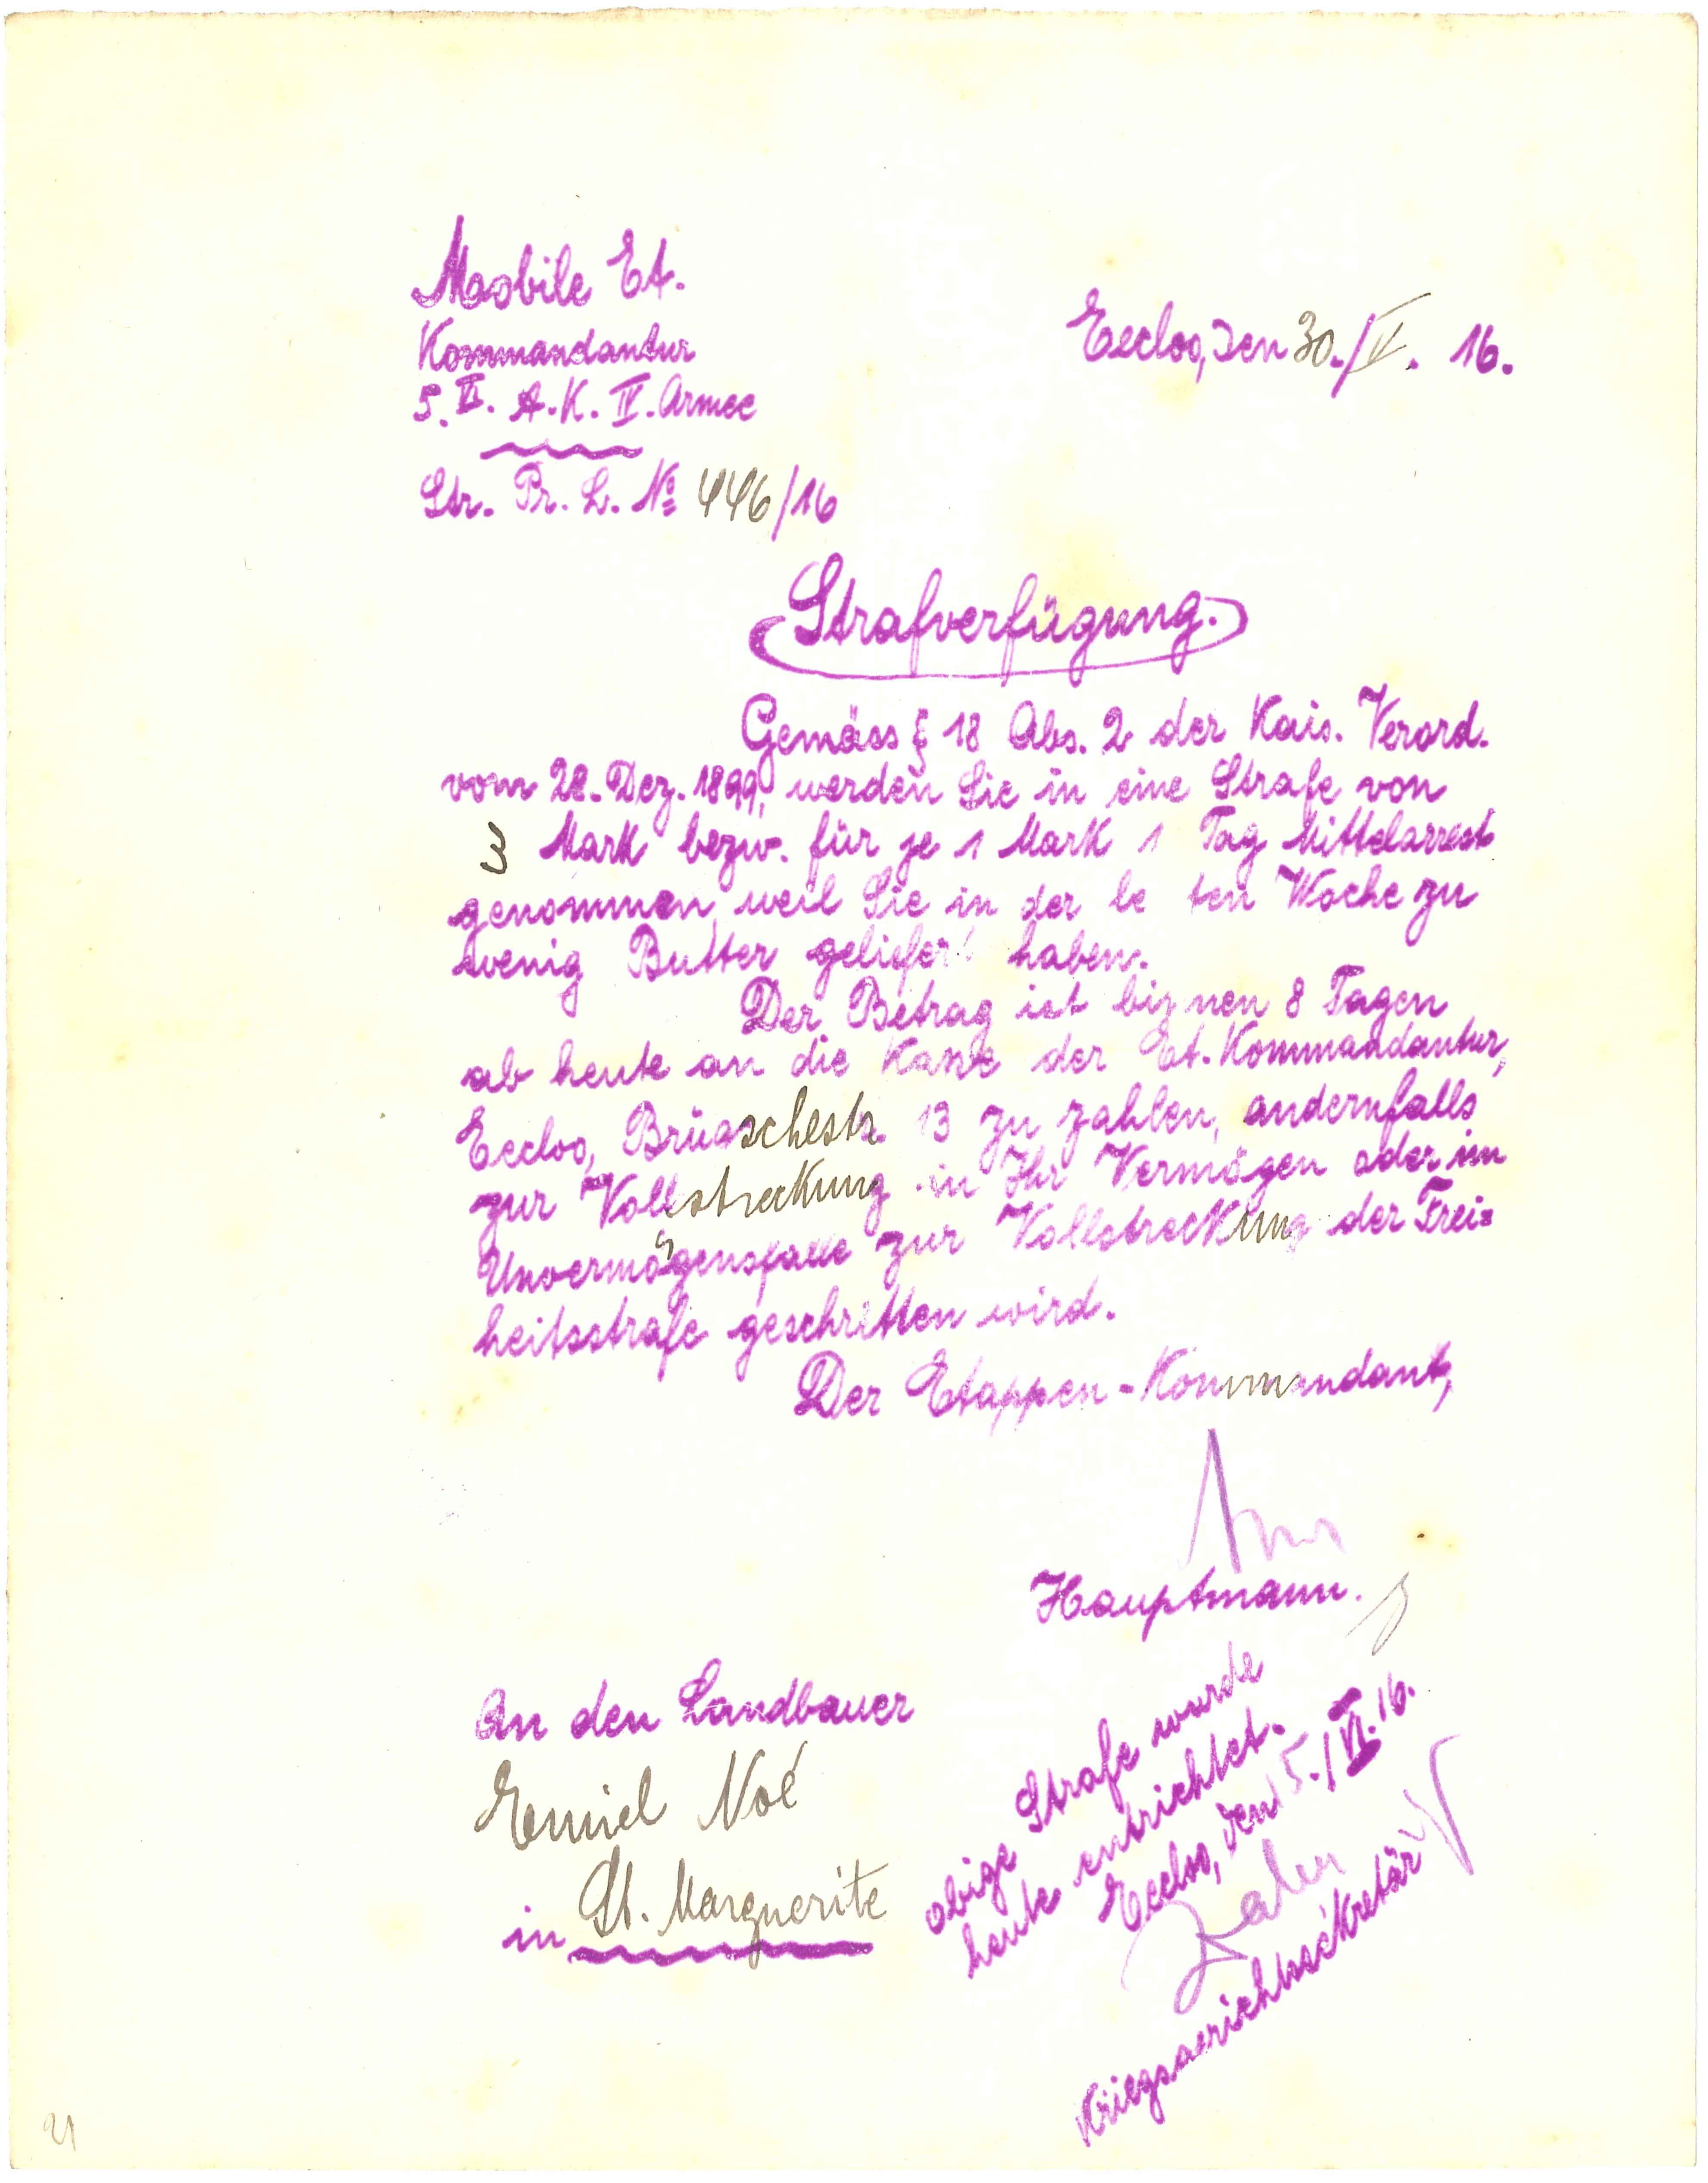 Mobile Et.
Kommandantur
5. VI. A.K. IV. Armee
Eecloo, den 30./V. 16.
Str. Pr. L. № 446/16
Strafverfügung.
Gemäss § 18 Abs. 2 der Kais. Verord.
vom 28. Dez. 1899, werden Sie in eine Strafe von
3 Mark bezw. für je 1 Mark 1 Tag Mittelarrest
genommen, weil Sie in der le ten Woche zu
wenig Butter geliefert haben.
Der Betrag ist binnen 8 Tagen
ab heute an die Kasse der Et. Kommandantur,
Eecloo, Brüggschestr. 13 zu zahlen, andernfalls
zur Vollstreckung in Ihr Vermögen oder im
Unvermögensfalle zur Vollstreckung der Frei=
heitsstrafe geschritten wird.
Der Etappen-Kommandant,
Hauptmann.
An den Landbauer
Emiel Noé
in St. Marguerite
obige Strafe wurde
heute entrichtet.
Eecloo, den 5./VI. 16.
Kriegsgerichtssekretär
21